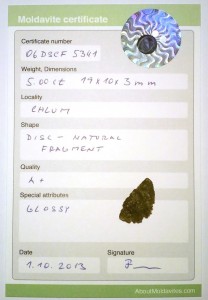 Moldavite certificate
Certificate number
06DSCF 5341
Weight, Dimensions
5.00ct 19x10x3mm
Locality
CHLUM
Shape
DISC - NATURAL
FRAGMENT
Quality
A+
Special attributes
GLOSSY
Date
Signature
1.10.2013
AboutMoldavites.com